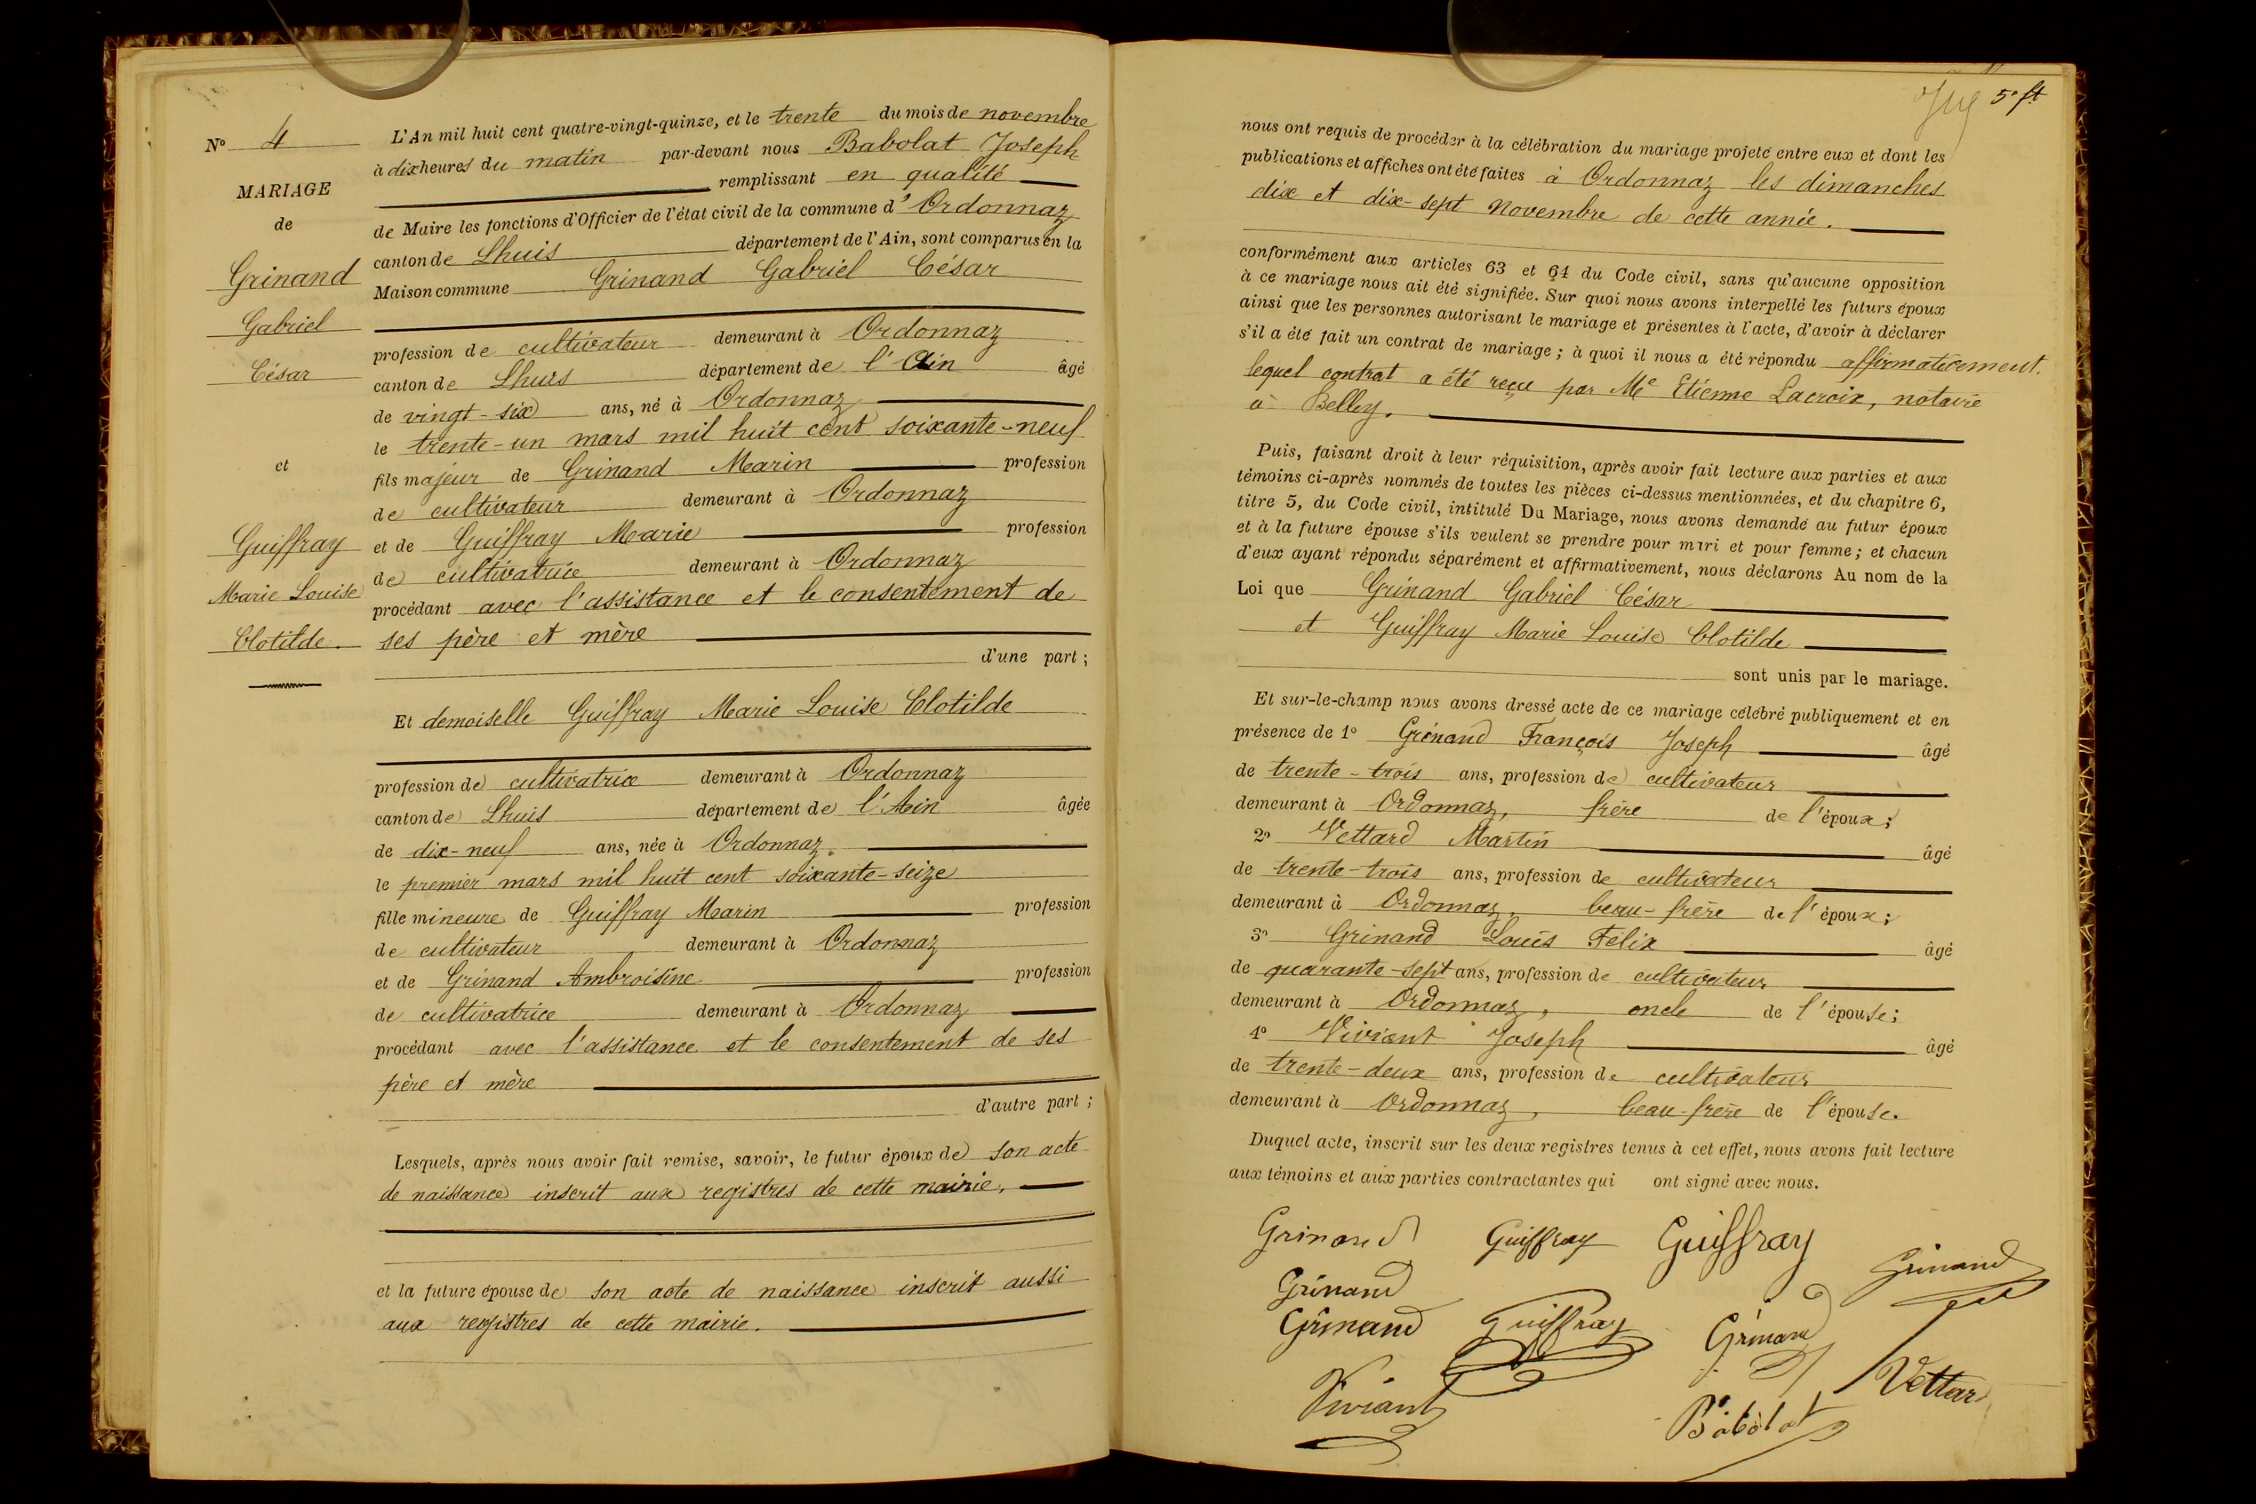 Nº 4
MARIAGE
de
Grinand
Gabriel
César
et
Guiffray
Marie Louise
Clotilde.
L'An mil huit cent quatre-vingt-quinze, et le trente du mois de novembre
à dix heures du matin par-devant nous Babolat Joseph
remplissant en qualité
de Maire les fonctions d'Officier de l'état civil de la commune d'Ordonnaz
canton de Lhuis département de l'Ain, sont comparus en la
Maison commune Grinand Gabriel César
profession de cultivateur demeurant à Ordonnaz
canton de Lhuis département de l'Ain âgé
de vingt-six ans, né à Ordonnaz
le trente-un mars mil huit cent soixante-neuf
fils majeur de Grinand Marin profession
de cultivateur demeurant à Ordonnaz
et de Guiffray Marie profession
de cultivatrice demeurant à Ordonnaz
procédant avec l'assistance et le consentement de
ses père et mère
d'une part ;
Et demoiselle Guiffray Marie Louise Clotilde
profession de cultivatrice demeurant à Ordonnaz
canton de Lhuis département de l'Ain âgée
de dix-neuf ans, née à Ordonnaz.
le premier mars mil huit cent soixante-seize
fille mineure de Guiffray Marin profession
de cultivateur demeurant à Ordonnaz
et de Grinand Ambroisine profession
de cultivatrice demeurant à Ordonnaz
procédant avec l'assistance et le consentement de ses
père et mère
d'autre part ;
Lesquels, après nous avoir fait remise, savoir, le futur époux de son acte
de naissance inscrit aux registres de cette mairie,
et la future épouse de son acte de naissance inscrit aussi
aux registres de cette mairie.
5e ft
nous ont requis de procéder à la célébration du mariage projeté entre eux et dont les
publications et affiches ont été faites à Ordonnaz les dimanches
dix et dix-sept novembre de cette année.
conformément aux articles 63 et 64 du Code civil, sans qu'aucune opposition
à ce mariage nous ait été signifiée. Sur quoi nous avons interpellé les futurs époux
ainsi que les personnes autorisant le mariage et présentes à l'acte, d'avoir à déclarer
s'il a été fait un contrat de mariage ; à quoi il nous a été répondu affirmativement.
lequel contrat a été reçu par Me Etienne Lacroix, notaire
à Belley.
Puis, faisant droit à leur réquisition, après avoir fait lecture aux parties et aux
témoins ci-après nommés de toutes les pièces ci-dessus mentionnées, et du chapitre 6,
titre 5, du Code civil, intitulé Du Mariage, nous avons demandé au futur époux
et à la future épouse s'ils veulent se prendre pour mari et pour femme ; et chacun
d'eux ayant répondu séparément et affirmativement, nous déclarons Au nom de la
Loi que Grinand Gabriel César
et Guiffray Marie Louise Clotilde
sont unis par le mariage.
Et sur-le-champ nous avons dressé acte de ce mariage célébré publiquement et en
présence de 1º Grinand François Joseph âgé
de trente-trois ans, profession de cultivateur
demeurant à Ordonnaz, frère de l'époux ;
2º Vettard Martin âgé
de trente-trois ans, profession de cultivateur
demeurant à Ordonnaz, beau-frère de l'époux ;
3º Grinand Louis Félix âgé
de quarante-sept ans, profession de cultivateur
demeurant à Ordonnaz, oncle de l'épouse ;
4º Viviant Joseph âgé
de trente-deux ans, profession de cultivateur
demeurant à Ordonnaz, beau-frère de l'épouse.
Duquel acte, inscrit sur les deux registres tenus à cet effet, nous avons fait lecture
aux témoins et aux parties contractantes qui ont signé avec nous.
Grinand Guiffray Guiffray Grinand
Grinand
Grinand Guiffray Grinand
Viviant Vettard
Babolat